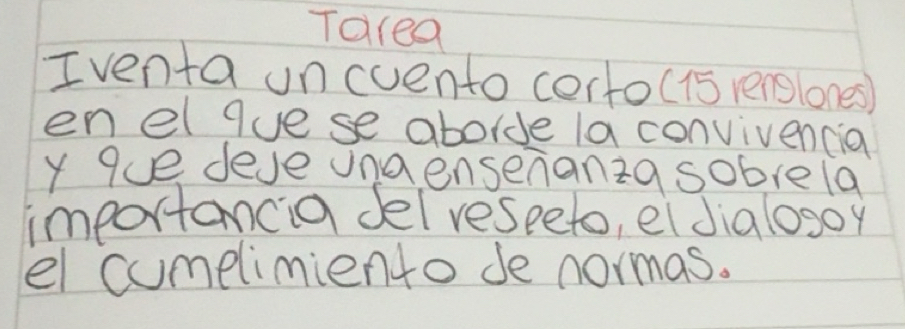 Tarea
Iventa un cuento corto (15 renglones)
en el que se aborde la convivencia
y que deje una enseñanza sobre la
importancia del respeto, el dialogo y
el cumplimiento de normas.